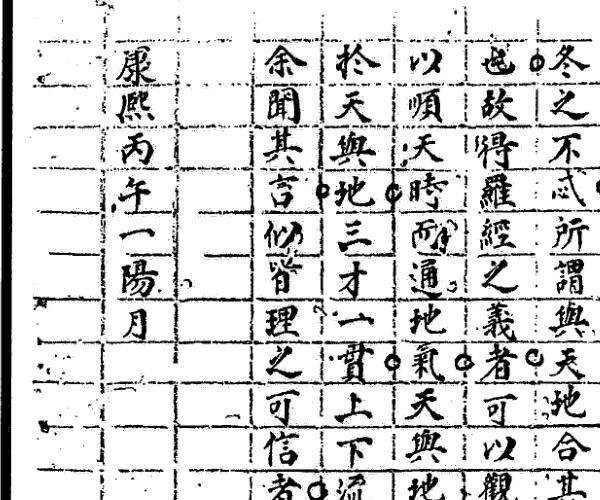 冬之不忒所謂與天地合其
也故得羅經之義者可以觀
以順天時而通地氣天與地
於天與地三才一貫上下流
余聞其言似皆理之可信者
康熙丙午一陽月